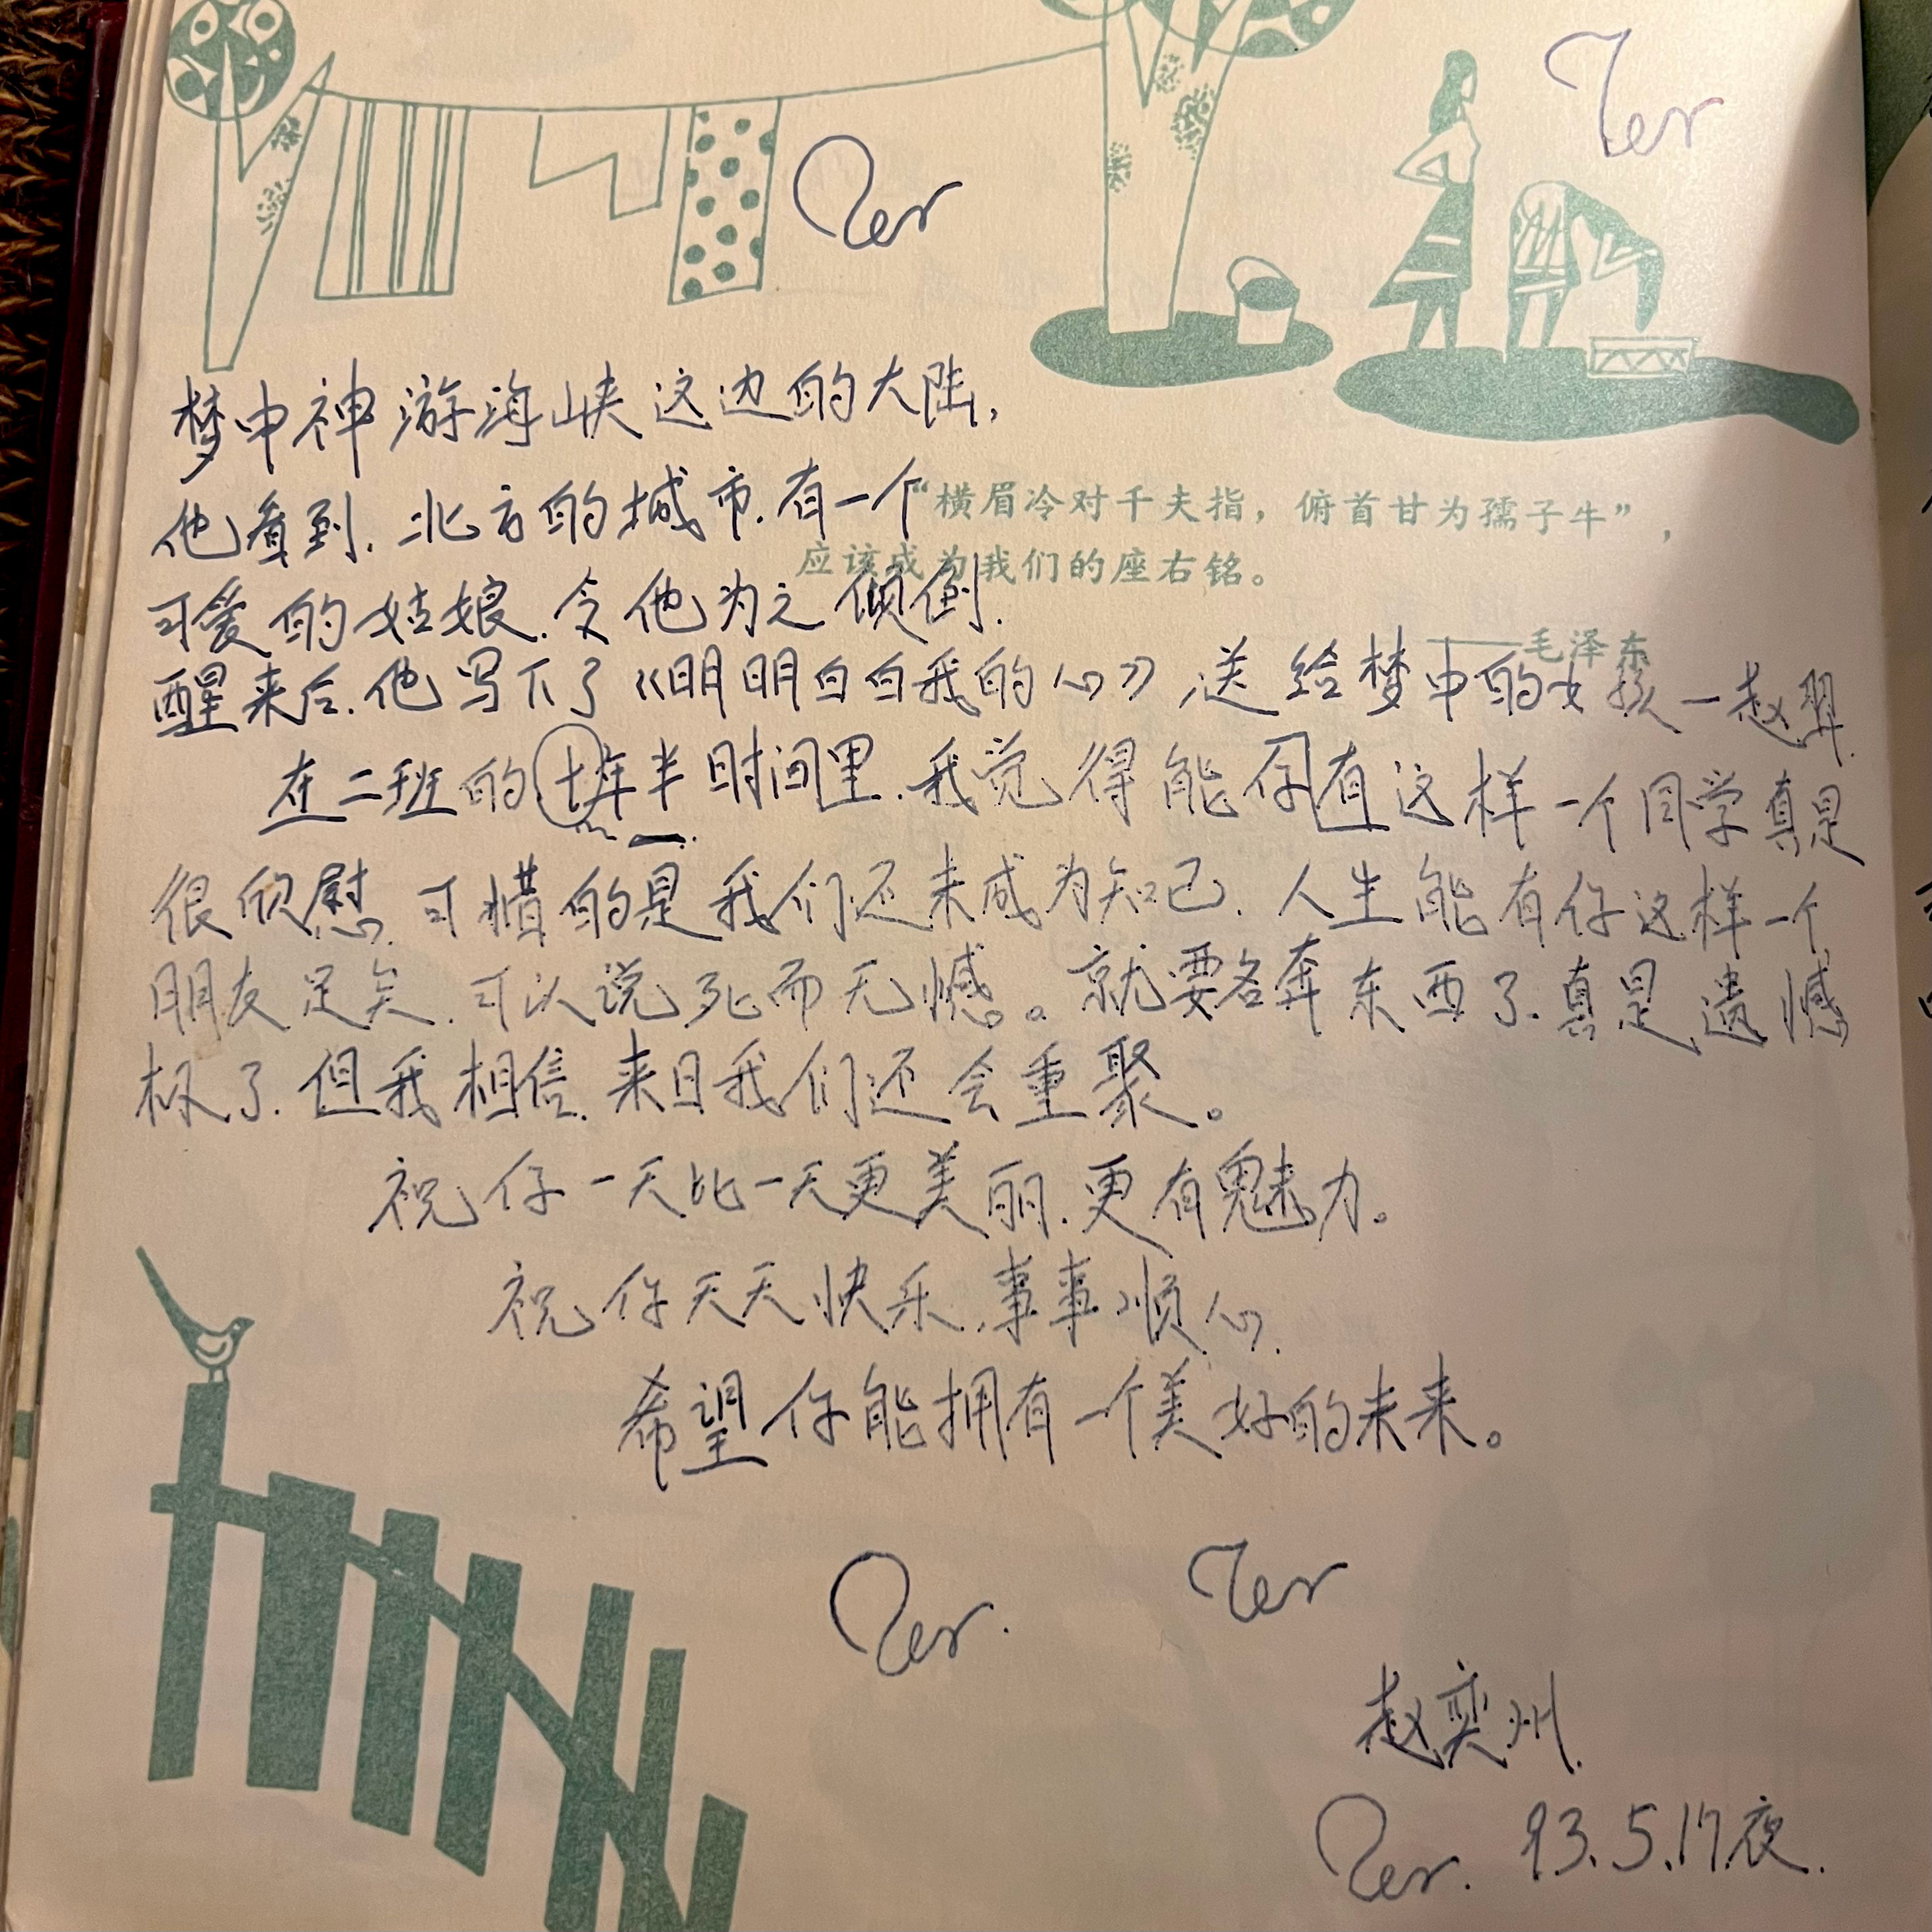 梦中神游海峡这边的大陆,
他看到.北方的城市.有一个
“横眉冷对千夫指，俯首甘为孺子牛”，
应该成为我们的座右铭。
——毛泽东
可爱的姑娘.令他为之倾倒.
醒来后.他写下了《明明白白我的心》送给梦中的女孩一赵羿.
在二班的年半时间里.我觉得能有这样一个同学真是
很欣慰.可惜的是我们还未成为知己.人生能有你这样一个
朋友足矣.可以说死而无憾。就要各奔东西了.真是遗憾
极了.但我相信.来日我们还会重聚。
祝你一天比一天更美丽.更有魅力。
祝你天天快乐.事事顺心.
希望你能拥有一个美好的未来。
赵奕州.
93.5.17.夜.